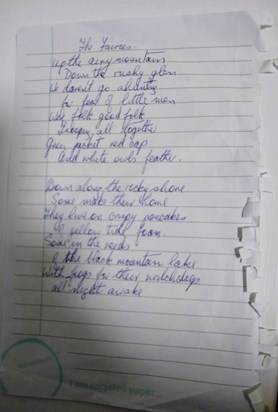 The Fairies
Up the airy mountain
Down the rushy glen
We daren't go ahunting
For fear of little men
Wee folk good folk
Trooping all together
Green jacket red cap
And white owls feather.
Down along the rocky shore
Some make their home
They live on crispy pancakes
Of yellow tide foam.
Some in the reeds
Of the black mountain lake
With frogs for their watchdogs
All night awake